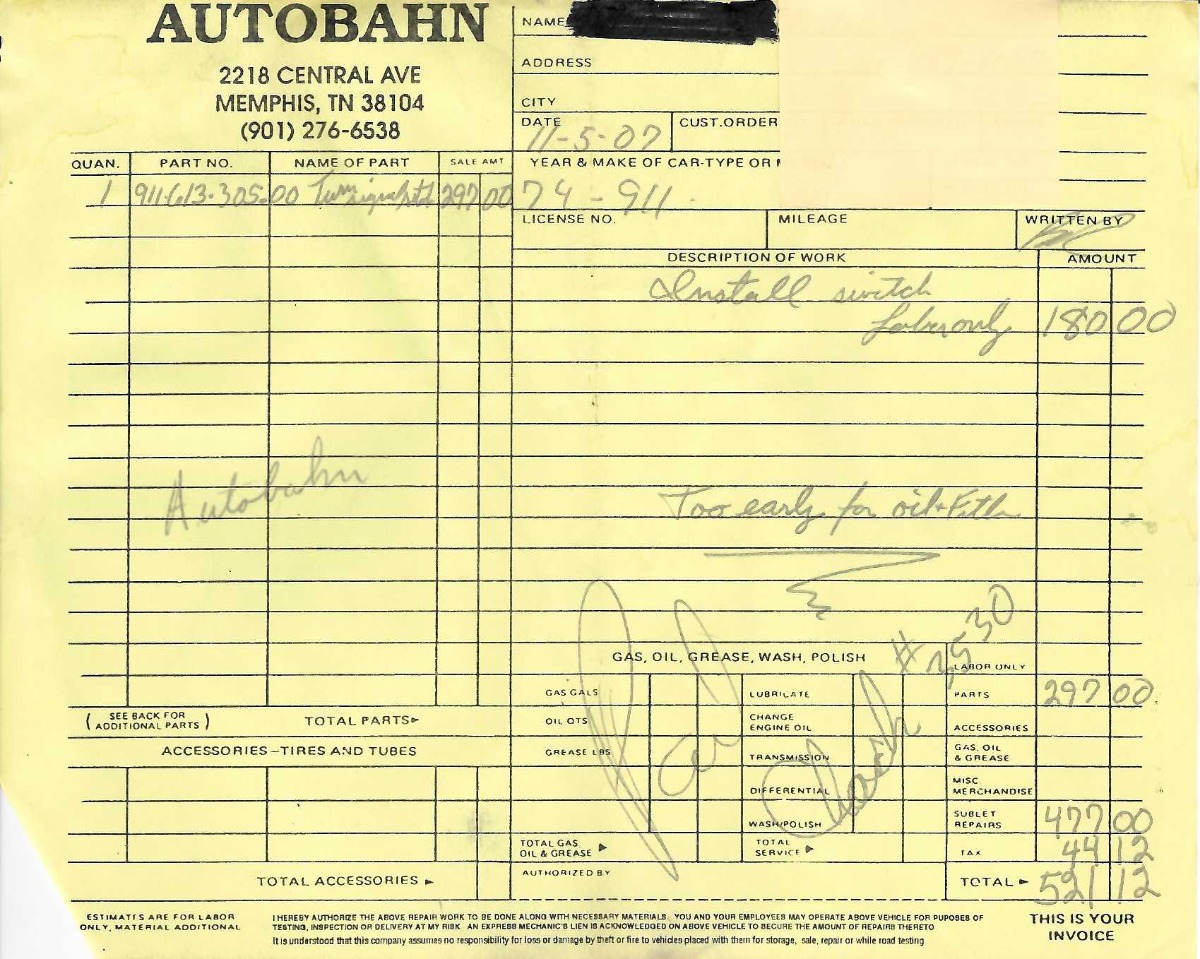 AUTOBAHN
2218 CENTRAL AVE
MEMPHIS, TN 38104
(901) 276-6538
NAME
ADDRESS
CITY
DATE 11-5-07 CUST.ORDER
QUAN. PART NO. NAME OF PART SALE AMT
1 911.613.305.00 Turn signal 297 00
YEAR & MAKE OF CAR-TYPE OR
74 - 911
LICENSE NO. MILEAGE WRITTEN BY
DESCRIPTION OF WORK AMOUNT
Install switch
Labor only 180 00
Autobahn
Too early for oil +
GAS, OIL, GREASE, WASH, POLISH
Pd Check #3530
LABOR ONLY
GAS GALS LUBRICATE PARTS 297 00
OIL QTS CHANGE ENGINE OIL ACCESSORIES
GREASE LBS TRANSMISSION GAS, OIL & GREASE
DIFFERENTIAL MISC MERCHANDISE
WASH/POLISH SUBLET REPAIRS 477 00
TOTAL GAS OIL & GREASE TOTAL SERVICE TAX 44 12
AUTHORIZED BY TOTAL 521 12
(SEE BACK FOR ADDITIONAL PARTS) TOTAL PARTS
ACCESSORIES-TIRES AND TUBES
TOTAL ACCESSORIES
ESTIMATES ARE FOR LABOR
ONLY, MATERIAL ADDITIONAL
I HEREBY AUTHORIZE THE ABOVE REPAIR WORK TO BE DONE ALONG WITH NECESSARY MATERIALS. YOU AND YOUR EMPLOYEES MAY OPERATE ABOVE VEHICLE FOR PUPOSES OF
TESTING, INSPECTION OR DELIVERY AT MY RISK. AN EXPRESS MECHANIC'S LIEN IS ACKNOWLEDGED ON ABOVE VEHICLE TO SECURE THE AMOUNT OF REPAIRS THERETO
It is understood that this company assumes no responsibility for loss or damage by theft or fire to vehicles placed with them for storage, sale, repair or while road testing.
THIS IS YOUR
INVOICE